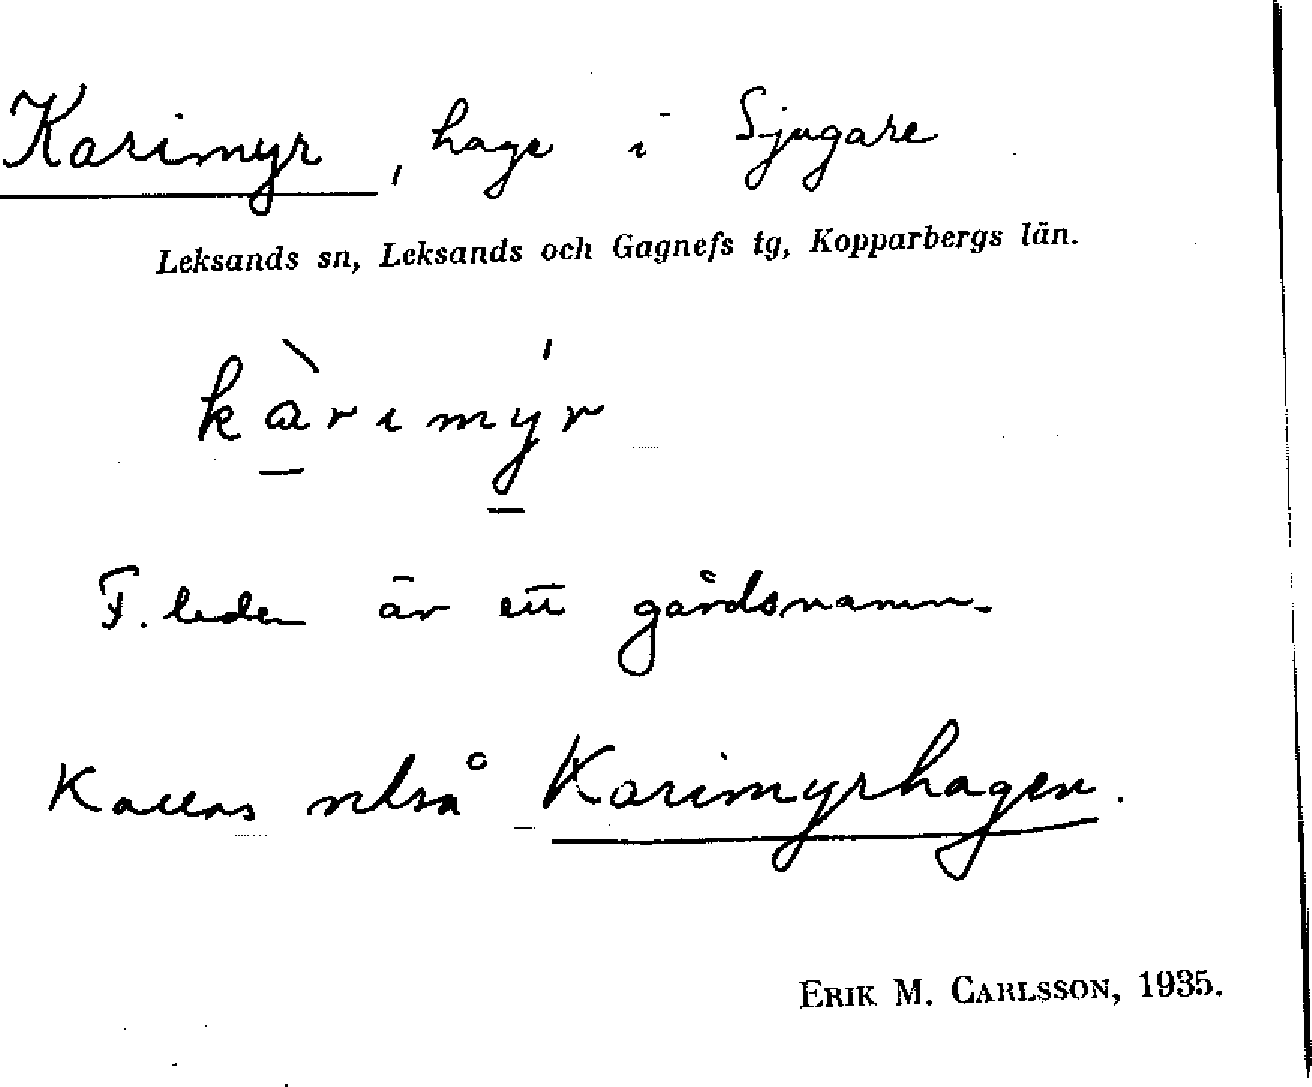 Karimyr, hage i Sjugare
Leksands sn, Leksands och Gagnefs tg, Kopparbergs län.
kàrimýr
F. leden är ett gårdsnamn.
Kallas också Karimyrhagen.
ERIK M. CARLSSON, 1935.